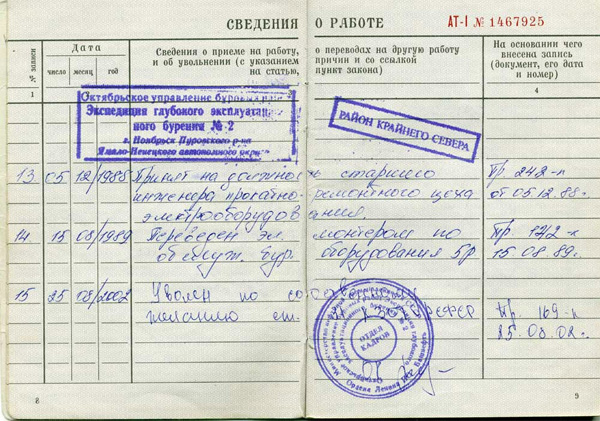 СВЕДЕНИЯ О РАБОТЕ
АТ-I № 1467925
№ записи
Дата
число месяц год
Сведения о приеме на работу, о переводах на другую работу
и об увольнении (с указанием причин и со ссылкой
на статью, пункт закона)
На основании чего
внесена запись
(документ, его дата
и номер)
1
4
Октябрьское управление
Экспедиция глубокого
ного бурения № 2
г. Ноябрьск Пуровского р-на
Ямало-Ненецкого автономного
РАЙОН КРАЙНЕГО СЕВЕРА
13 05 12 1985 Принят на старшего Пр 242-п
инженера ремонтного цеха от 05.12.88.
электрооборудования.
14 15 08 1989 Переведен эл. монтером по Пр.
обслуж. бур. оборудования 5р 15.08.89.
15 25 08 2002 Уволен по
желанию ст. Пр. 169-п
25.08.02.
ОТДЕЛ
КАДРОВ
8
9